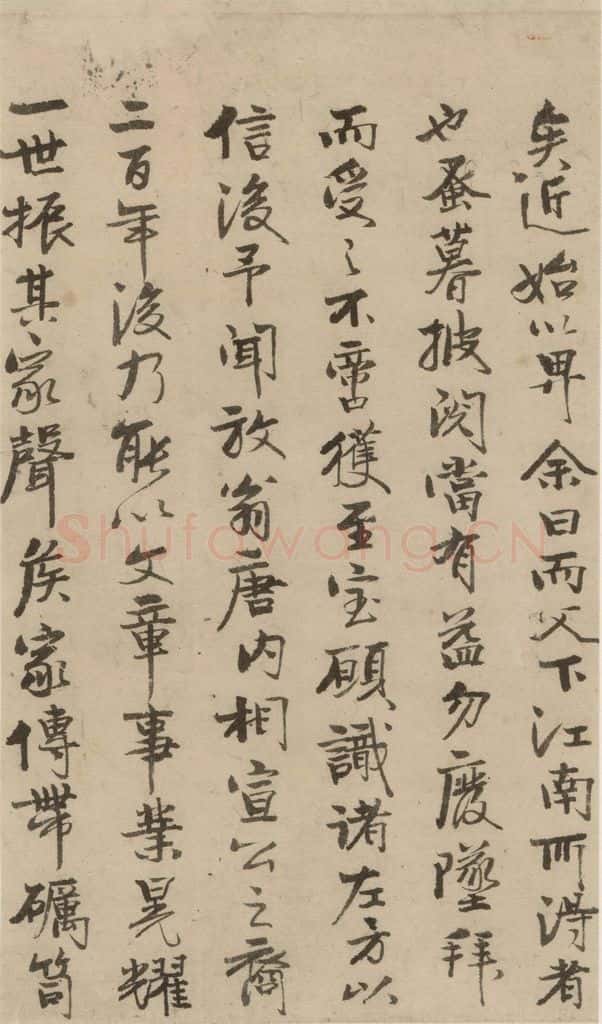 矣近始以畀余曰而父下江南所得者
也蚤暮披阅當有益勿废墜拜
而受之不啻獲至宝願識诸左方以
信後予聞放翁唐内相宣公之裔
二百年後乃能以文章事業晃耀
一世振其家聲侯家傳帶礪笥
Shufawang.CN